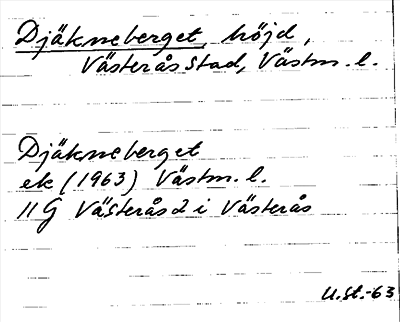 Djäkneberget, höjd,
Västerås stad, Västm. l.
Djäkneberget
ek (1963) Västm. l.
11 G Västerås 2 i Västerås
U.St.-63